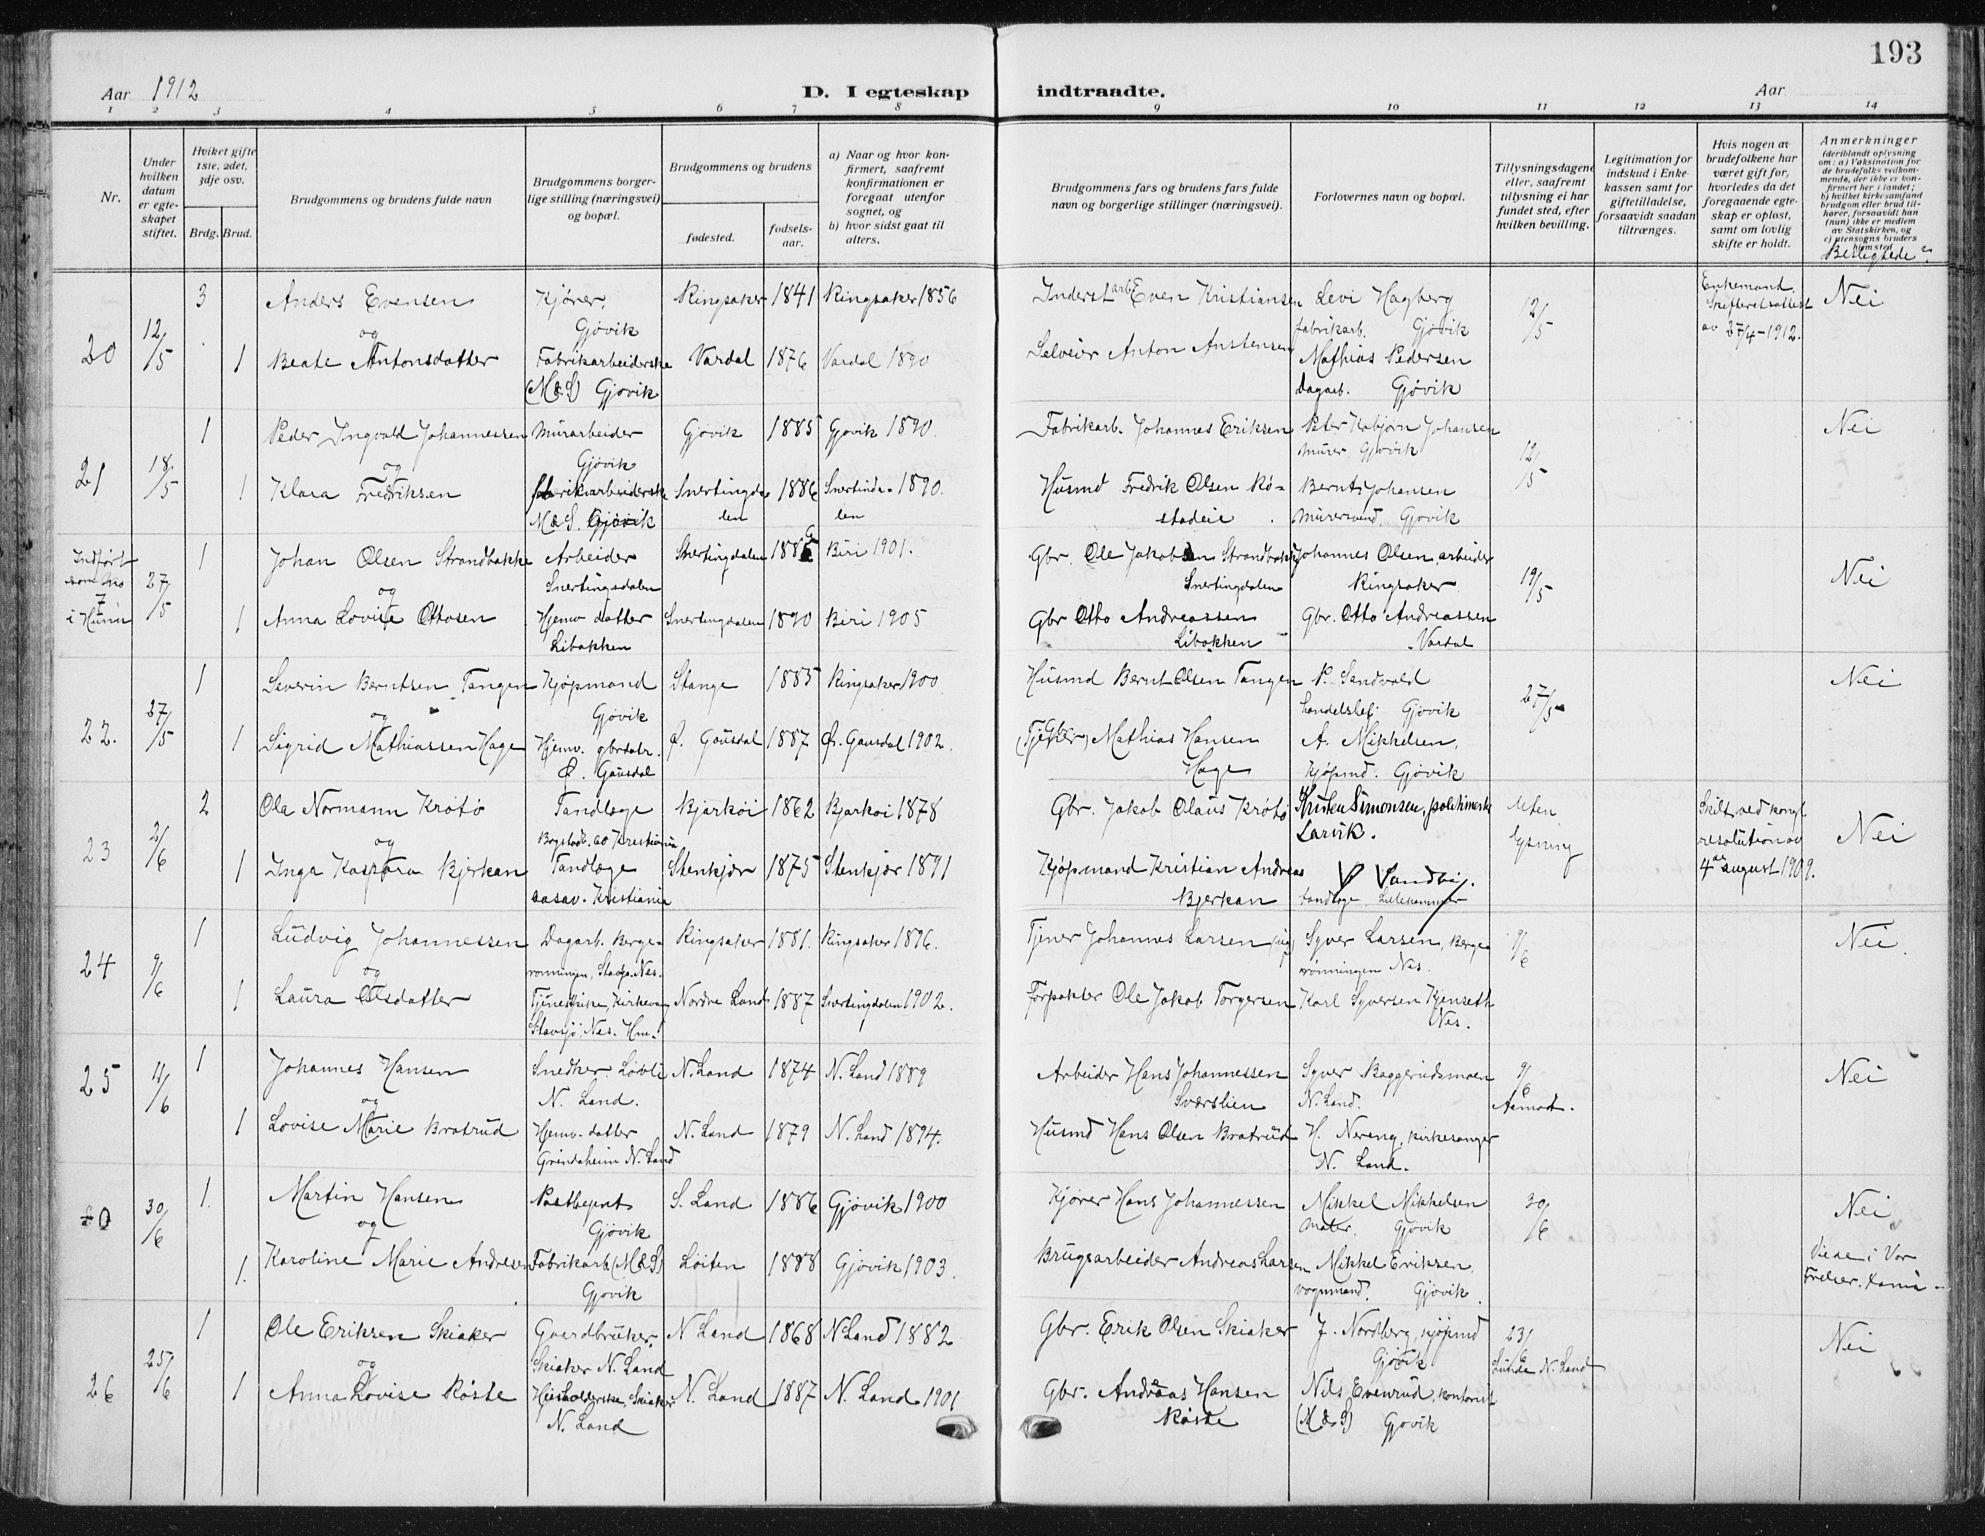 193
Aar 1912
D. I egteskap indtraadte.
Aar
1 2 3 4 5 6 7 8 9 10 11 12 13 14
Nr.
Under hvilken datum er egte-skapet stiftet.
Hviket gifte 1ste, 2det, 3dje osv.
Brdg. Brud.
Brudgommens og brudens fulde navn
Brudgommens borger-lige stilling (næringsvei) og bopæl.
Brudgommens og brudens
fødested.
fødsels-aar.
a) Naar og hvor kon-firmert, saafremt konfirmationen er foregaat utenfor sognet, og
b) hvor sidst gaat til alters.
Brudgommens fars og brudens fars fulde navn og borgerlige stillinger (næringsvei).
Forlovernes navn og bopæl.
Tillysningsdagene eller, saafremt tillysning ei har fundet sted, efter hvilken bevilling.
Legitimation for indskud i Enke-kassen samt for giftetilladelse, forsaavidt saadan tiltrænges.
Hvis nogen av brudefolkene har været gift før, hvorledes da det foregaaende egte-skap er opløst, samt om lovlig skifte er holdt.
Anmerkninger (deriblandt oplysning om: a) Vaksination for de brudefolks vedkom-mende, der ikke er kon-firmert her i landet; b) hvilket kirkesamfund brudgom eller brud til-hører, forsaavidt han (hun) ikke er medlem av Statskirken, og c) utensogns bruders hjemsted
Beslegtede?
20 12/5 3 Anders Evensen Kjører, Gjøvik Ringsaker 1841 Ringsaker 1856 Inderst arb. Even Kristiansen Levi Hagberg fabrikarb. Gjøvik 12/5 Enkemand. Skifteretsattest av 27/4-1912. Nei
og
1 Beate Antonsdatter Fabrikarbeiderske (M&S) Gjøvik Vardal 1876 Vardal 1890 Selveier Anton Anstensen Mathias Pedersen Dagarb. Gjøvik
21 18/5 1 Peder Ingvald Johannessen Murarbeider Gjøvik Gjøvik 1885 Gjøvik 1890. Fabrikarb. Johannes Eriksen Peter Johansen murer Gjøvik 12/5 Nei
og
1 Klara Fredriksen fabrikarbeiderske M&S. Gjøvik Snertingdalen 1886 Snertindalen 1890. Husmd Fredrik Olsen Røstadeie Bernt Johansen murersvend. Gjøvik
Indført som no 7 i Hunn 27/5 1 Johan Olsen Strandbakke Arbeider Snertingsdalen Snertingdalen 1886 Biri 1901. Gbr. Ole Jakobsen Strandbakke Snertingdalen Johannes Olsen, arbeider Ringsaker 19/5 Nei
og
1 Anna Lovise Ottosen Hjemv datter Libakken Snertingdalen 1890 Biri 1905 Gbr Otto Andreassen Libakken Gbr. Otto Andreassen Vardal
22. 27/5 1 Severin Berntsen Tangen Kjøpmand Gjøvik Stange 1885 Ringsaker 1900 Husmd Bernt Olsen Tangen P. Sandvold handelsbej Gjøvik 27/5 Nei
og
1 Sigrid Mathiassen Hage Hjemv. gbrdatr. Ø. Gausdal Ø. Gausdal 1887 Ø. Gausdal 1902. Gbr. Mathias Hansen Hage A. Mikkelsen, Kjøpmd. Gjøvik
23 2/6 2 Ole Normann Krøtø Tandlæge Bogstadv. 60 Kristiania Bjarkøi 1862 Bjarkøi 1878 Gbr. Jakob Olaus Krøtø Kristen Simonsen, politimester Larvik. Uten lysning Skilt ved kongl resolution av 4de august 1909. Nei
og
1 Inga Kaspara Bjerkan Tandlæge Kristiania Stenkjær 1875 Stenkjær 1891 Kjøpmand Kristian Andreas Bjerkan V Sandvig. tandlæge Lillehammer
24 9/6 1 Ludvig Johannessen Dagarb. Bergerønningen, Stavsjø. Nes. Ringsaker 1881. Ringsaker 1896. Tjener Johannes Larsen Syver Larsen, Bergerønningen Nes. 9/6 Nei
og
1 Laura Olsdatter Tjenestpike, Stavsjø, Nes. Hm. Nordre Land 1887 Snertingdalen 1902. Forpakter Ole Jakob Torgersen Karl Syversen Kjenseth Nes.
25 11/6 1 Johannes Hansen Snedker Løvli N. Land. N. Land 1874 N. Land 1889 Arbeider Hans Johannessen Sværslien Syver Baggerudsmoen N. Land. 9/6 Aamodt. Nei
og
1 Lovise Marie Bratrud Hjemv. datter Grindaheim N. Land N. Land 1879 N. Land 1894. Husmd Hans Olsen Bratrud H. Nereng, kirkesanger N. Land.
30/6 1. Martin Hansen Postbejent Gjøvik S. Land 1886 Gjøvik 1900 Kjører Hans Johannessen Mikkel Mikkelsen maler. Gjøvik 30/6 Nei
og
1. Karoline Marie Andresen Fabrikarb (M&S) Gjøvik Løiten 1888 Gjøvik 1903. Brugsarbeider Andreas Larsen Mikkel Eriksen vognmand. Gjøvik Viede i Vor Frelser.
26 25/6 1 Ole Eriksen Skiaker Gaardbruker Skiaker N. Land N Land 1868 N Land 1882 Gbr. Erik Olsen Skiaker J. Nordberg, kjøpmd Gjøvik 23/6 Lunde N. Land Nei
og
1 Anna Lovise Røste Husholderske, Skiaker N. Land N. Land 1887 N. Land 1901 Gbr. Andreas Hansen Røste Nils Evenrud, kontorist (M&S) Gjøvik